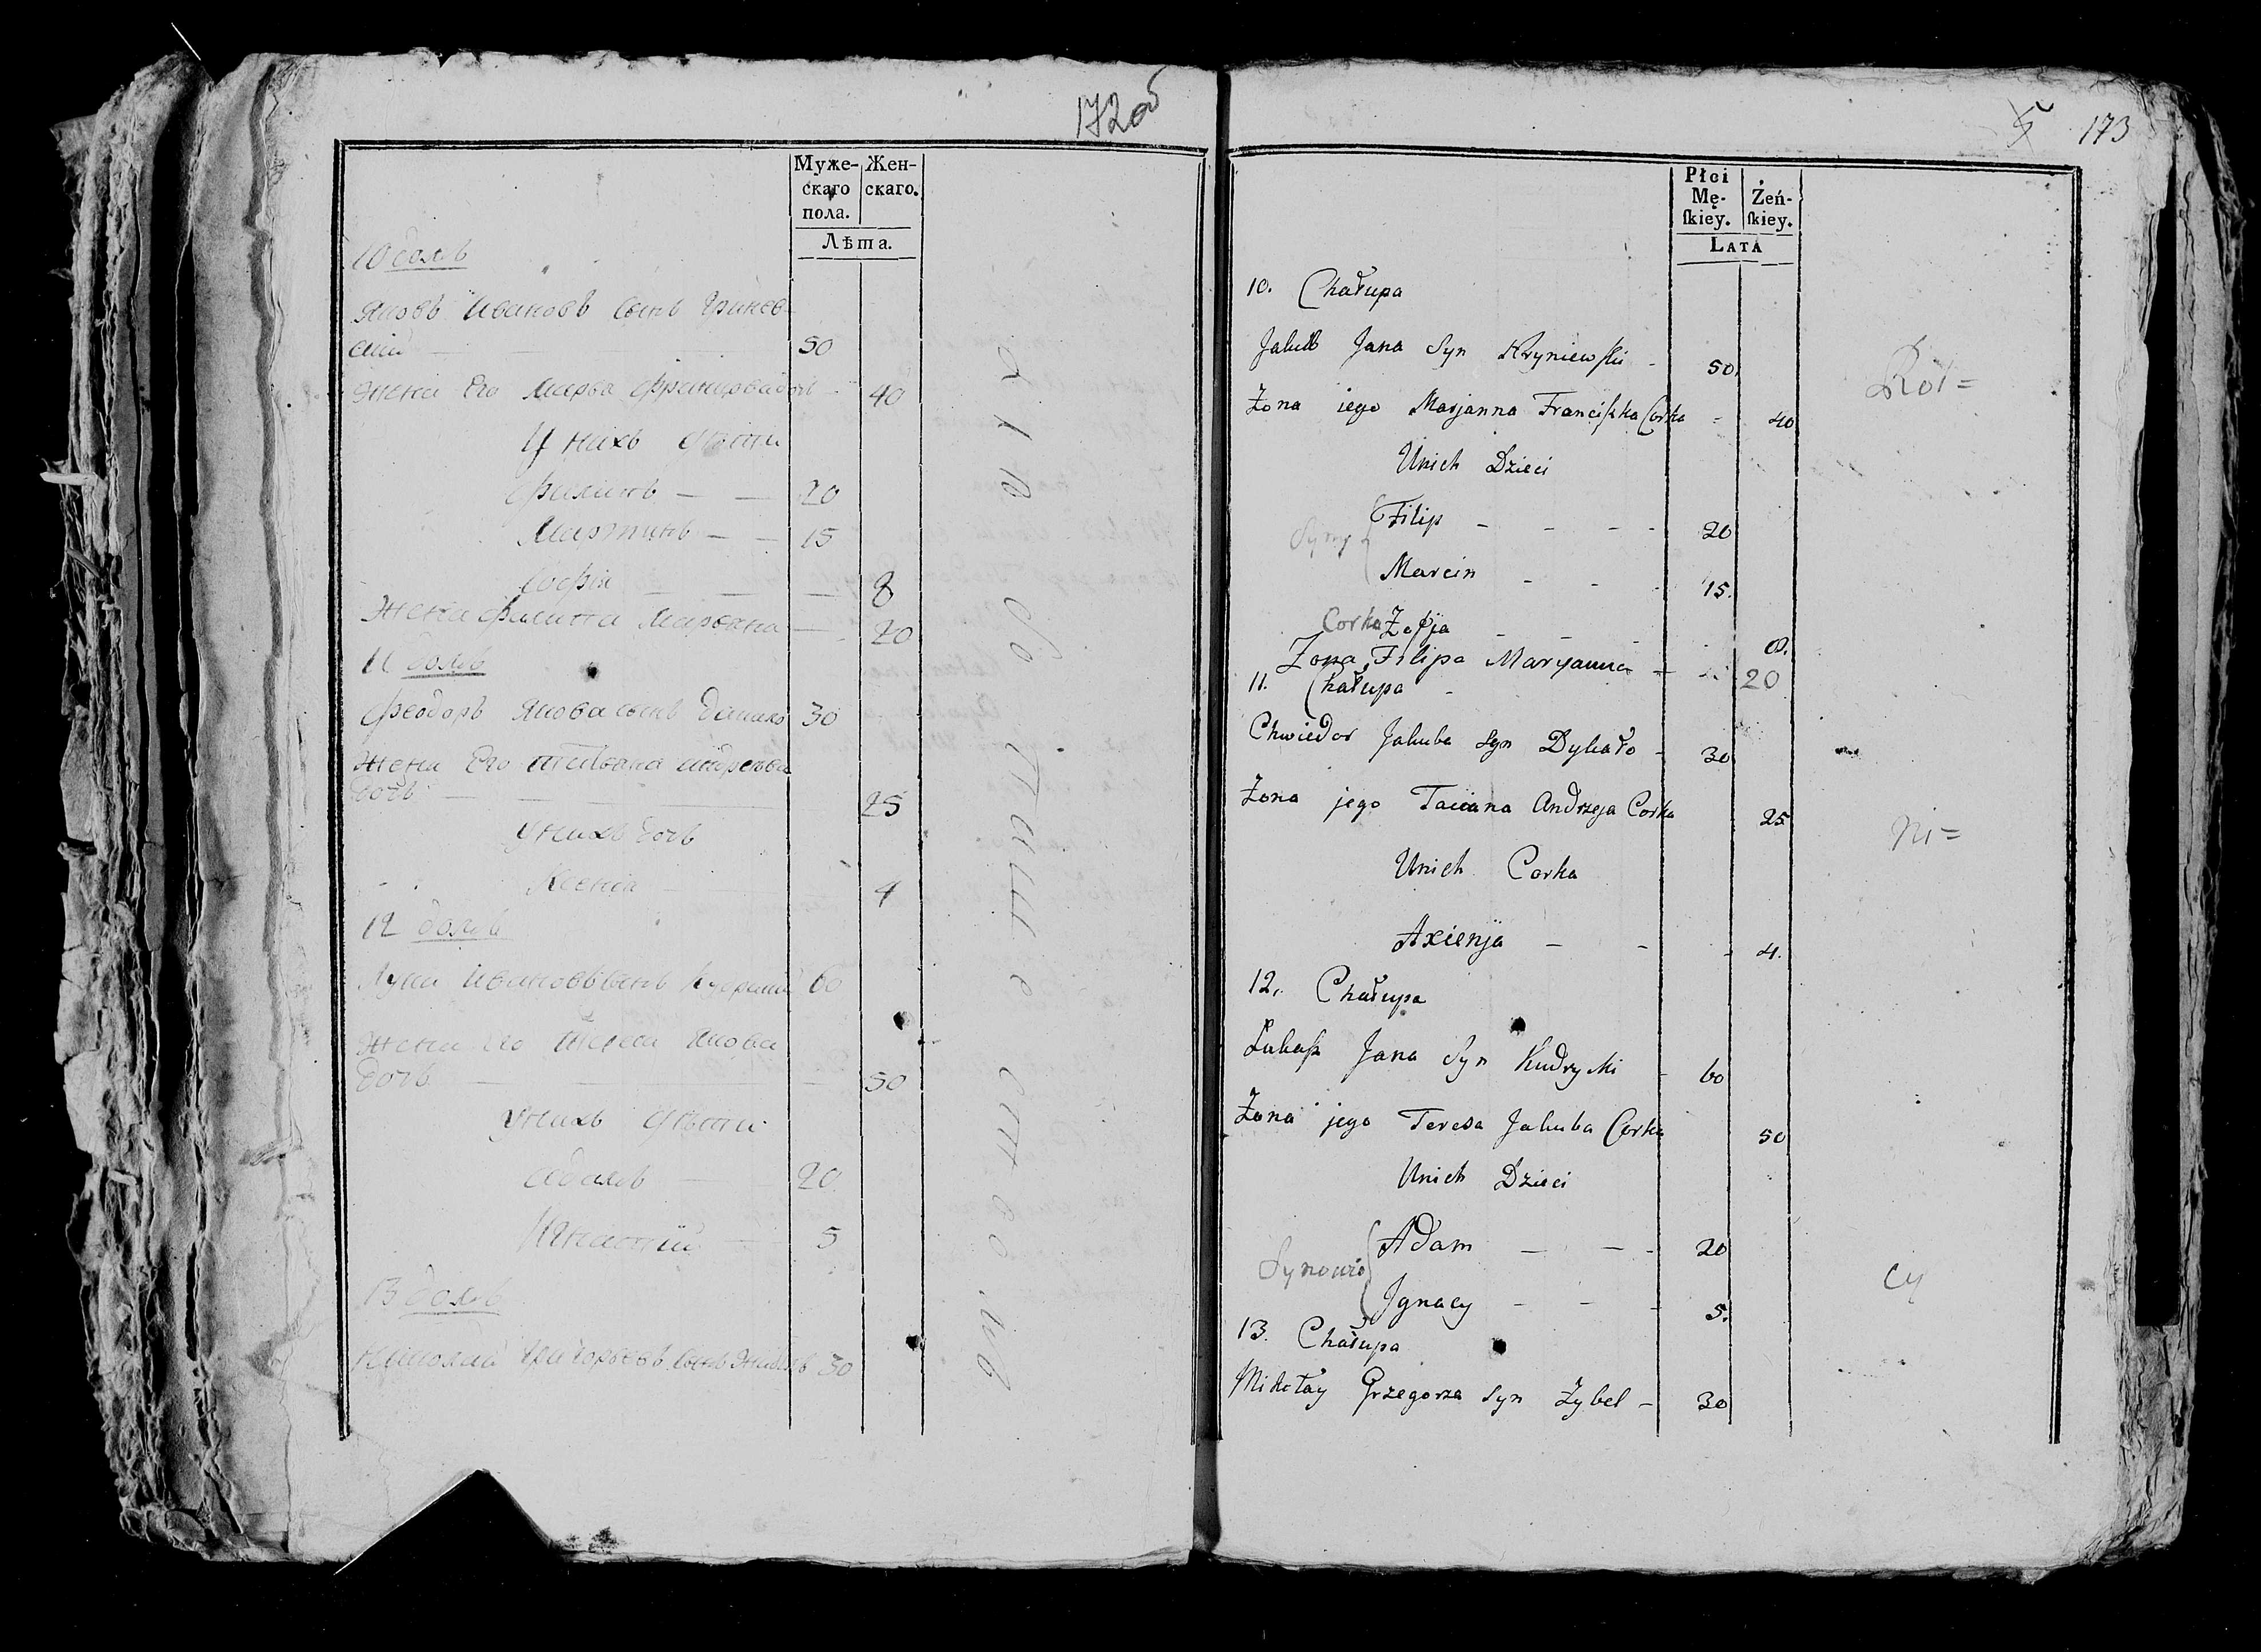 172об
Муже-
скаго
пола.
Жен-
скаго.
Лѣта.
10 домъ
Яковъ Ивановъ сынъ Гринев-
ский 50
Жена Его Марья 40
У нихъ дѣти
Филипъ — — 20
Мартинъ — — 15
Софія — — — 8
Жена Филиппа Марьяна — 20
11 домъ
Феодоръ Якова сынъ 30
Жена Его Татьяна Андреева
дочь — — 25
У нихъ дочь
Ксенія 4
12 домъ
Лука Ивановъ сынъ 60
Жена Его Тереса Якова
дочь — 50
У нихъ дѣти
Адамъ 20
Игнатий 5
13 домъ
Николай Григорьевъ сынъ 30
5 173
Płci
Mę-
ſkiey.
Żeń-
ſkiey.
LATA
10. Chałupa
Jakub Jana Syn Hryniewſki - 50.
Żona iego Marjanna Franciſzka Corka - 40
Unich Dzieci
Filip - - - - 20
Syny
Marcin - - - 15.
Corka Zofja - - - 8.
Żona Filipa Maryanna - 20
11. Chałupa -
Chwiedor Jakuba Syn Dykało - 30
Żona jego Taciana Andrzeja Corka 25
Unich Corka
Axienja - - - 4.
12. Chałupa
Łukaſz Jana Syn Kudrycki - 60
Żona jego Teresa Jakuba Corka 50
Unich Dzieci
Adam - - - 20
Synowie
Jgnacy - - - 5.
13. Chałupa
Mikołay Grzegorza Syn Zybel - 30